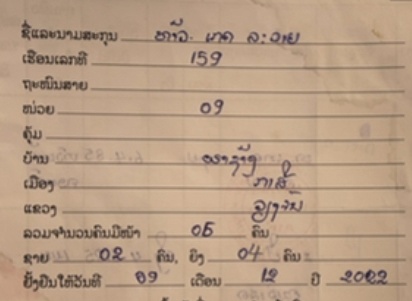 ຊື່ແລະນາມສະກຸນ ທ້າວ ເກດ ລະວາຍ
ເຮືອນເລກທີ 159
ຖະໜົນສາຍ
ໜ່ວຍ 09
ຄຸ້ມ
ບ້ານ
ເມືອງ
ແຂວງ ວຽງຈັນ
ລວມຈຳນວນຄົນມີໜ້າ 06 ຄົນ
ຊາຍ 02 ຄົນ, ຍິງ 04 ຄົນ
ຢັ້ງຢືນໃຫ້ວັນທີ 09 ເດືອນ 12 ປີ 2022